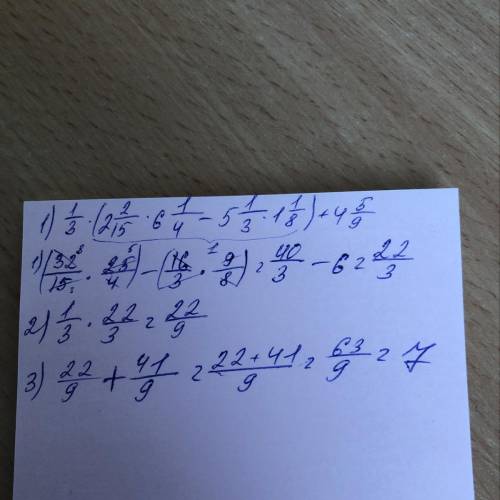 1) 1/3 · (2 2/15 · 6 1/4 − 5 1/3 · 1 1/8) + 4 5/9
1) (32/15 · 25/4) − (16/3 · 9/8) = 40/3 − 6 = 22/3
2) 1/3 · 22/3 = 22/9
3) 22/9 + 41/9 = 22+41/9 = 63/9 = 7